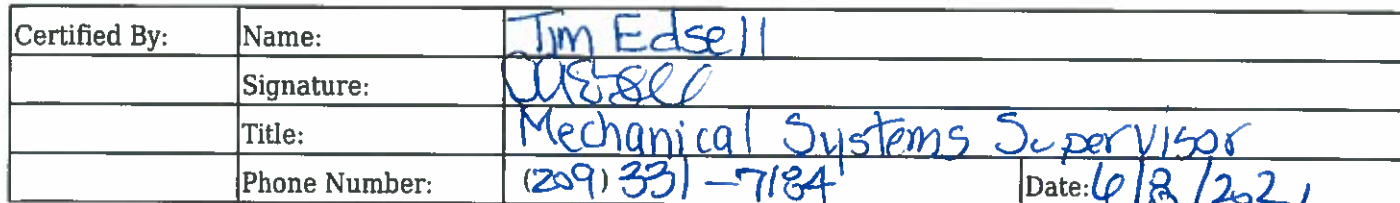 Certified By: Name: Tim Edsell
Signature:
Title: Mechanical Systems Supervisor
Phone Number: (209) 331-7184 Date: 6/8/2021